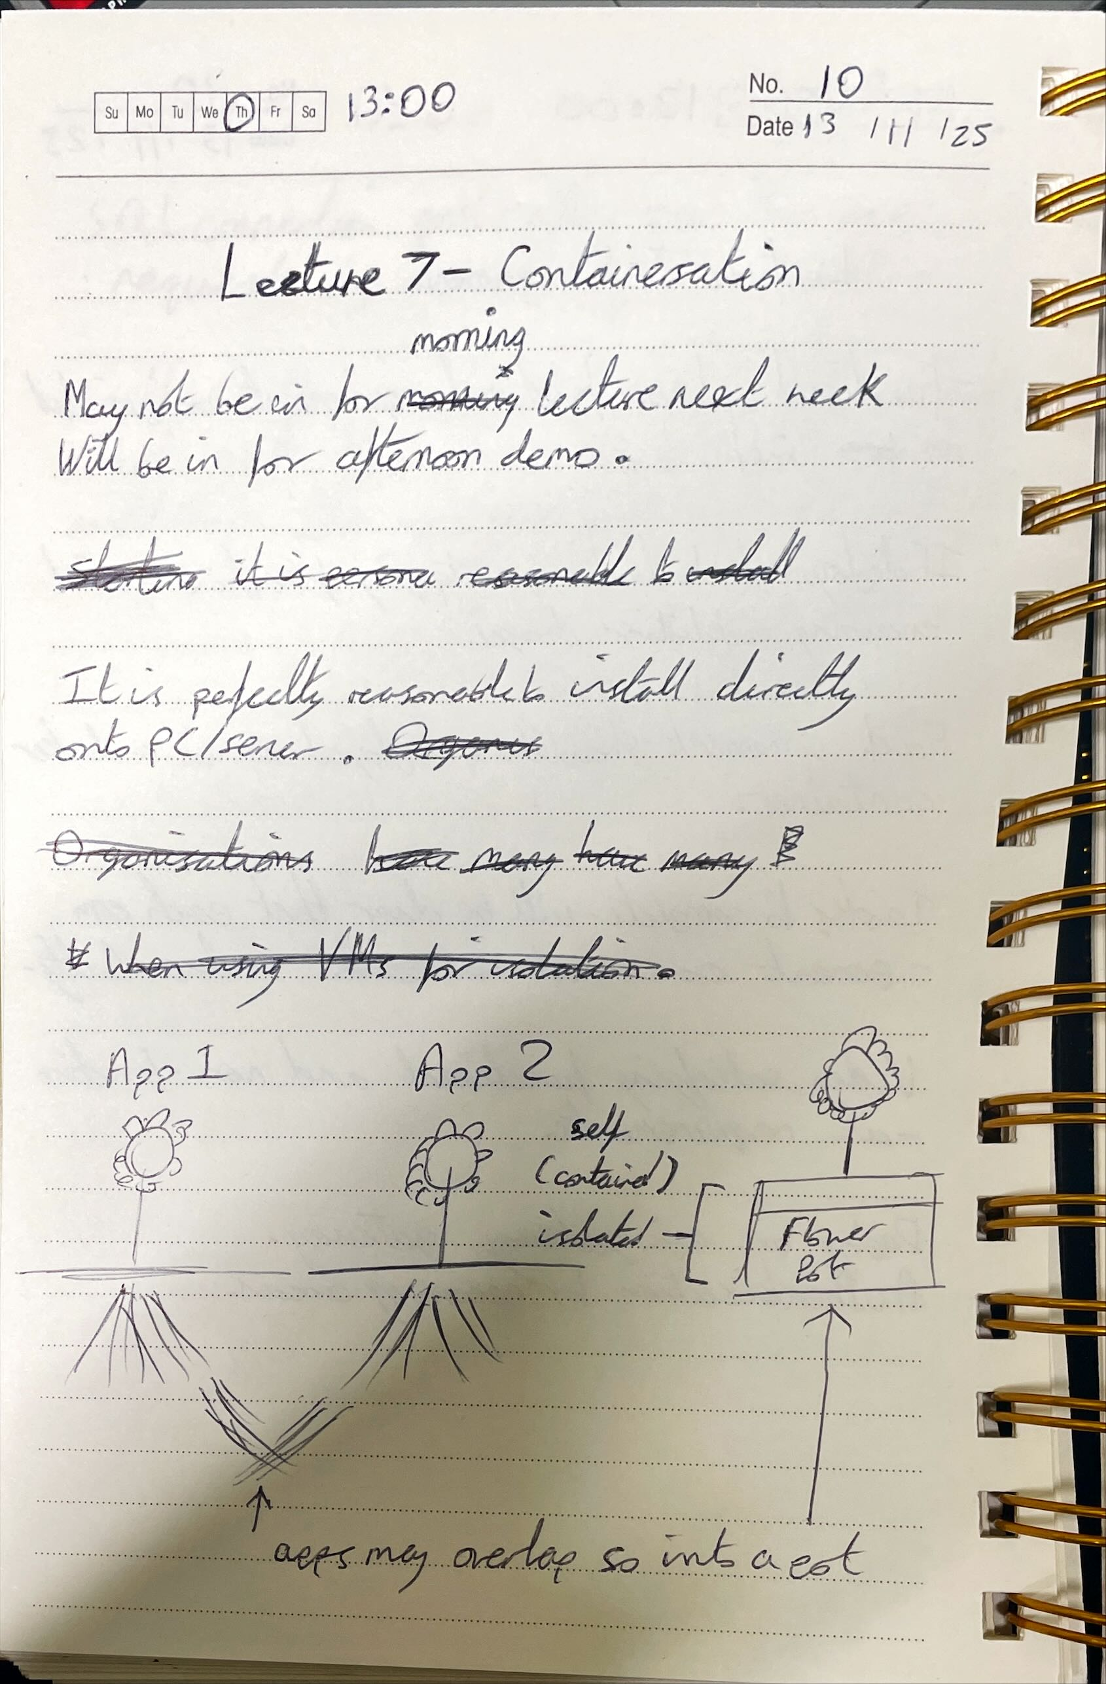 Su Mo Tu We Th Fr Sa 13:00
No. 10
Date 13 /11 /25
Lecture 7 - Containersation
morning
May not be in for morning lecture next week
Will be in for afternoon demo.
it is reasonable to install
It is perfectly reasonable to install directly
onto PC/server. Organis
Organisations have many have many
When using VMs for isolation.
App 1 App 2
self
(contained)
isolated
Flower
Pot
apps may overlap so into a pot